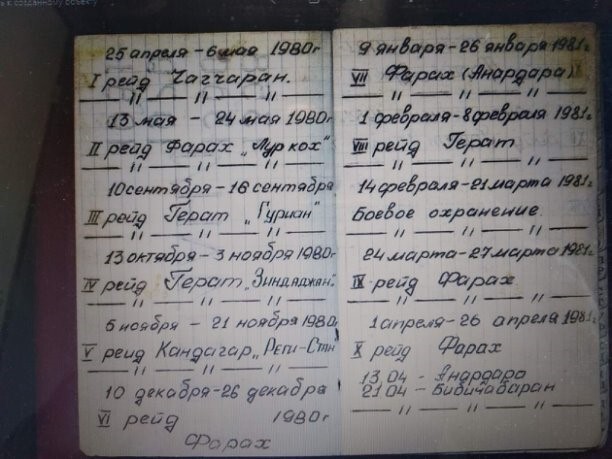 к созданному объекту
25 апреля - 6 мая 1980г
I рейд Чагчаран.
— " — " — " —
13 мая - 24 мая 1980г
II рейд Фарах „Лур кох"
— " — " — " —
10 сентября - 16 сентября
III рейд Герат „Гуриан"
— " — " — " —
13 октября - 3 ноября 1980г
IV рейд Герат „Зиндаджан"
— " — " — " —
6 ноября - 21 ноября 1980г
V рейд Кандагар „Реги-Стн
— " — " — " —
10 декабря - 26 декабря
VI рейд 1980г
Фарах
9 января - 26 января 1981г
VII Фарах (Анардара)
— " — " — " —
1 февраля - 8 февраля 1981г
VIII рейд Герат
— " — " — " —
14 февраля - 21 марта 1981г
Боевое охранение.
— " — " — " —
24 марта - 27 марта 1981г
IX рейд Фарах
— " — " — " —
1 апреля - 26 апреля 1981г
X рейд Фарах
13.04 - Анардара
21.04 - Бибичабаран
— " — " — " —